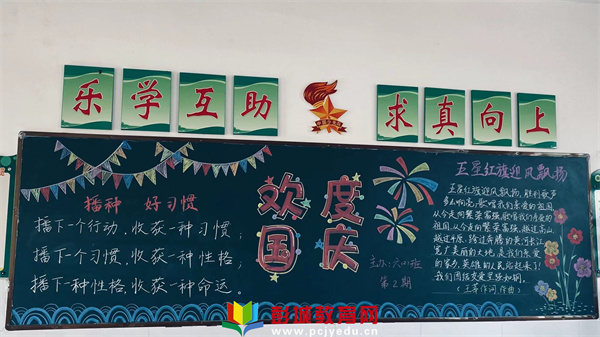 乐学互助
求真向上
播种 好习惯
播下一个行动,收获一种习惯;
播下一个习惯,收获一种性格;
播下一种性格,收获一种命运。
欢度
国庆
主办:六四班
第2期
五星红旗迎风飘扬
五星红旗迎风飘扬,胜利歌声
多么响亮,歌唱我们亲爱的祖国,
从今走向繁荣富强,歌唱我们亲爱的
祖国,从今走向繁荣富强。越过高山,
越过平原,跨过奔腾的黄河长江
宽广美丽的土地,是我们亲爱
的家乡,英雄的人民站起来了!
我们团结友爱坚强如钢。
彭城教育网
www.pcjyedu.cn